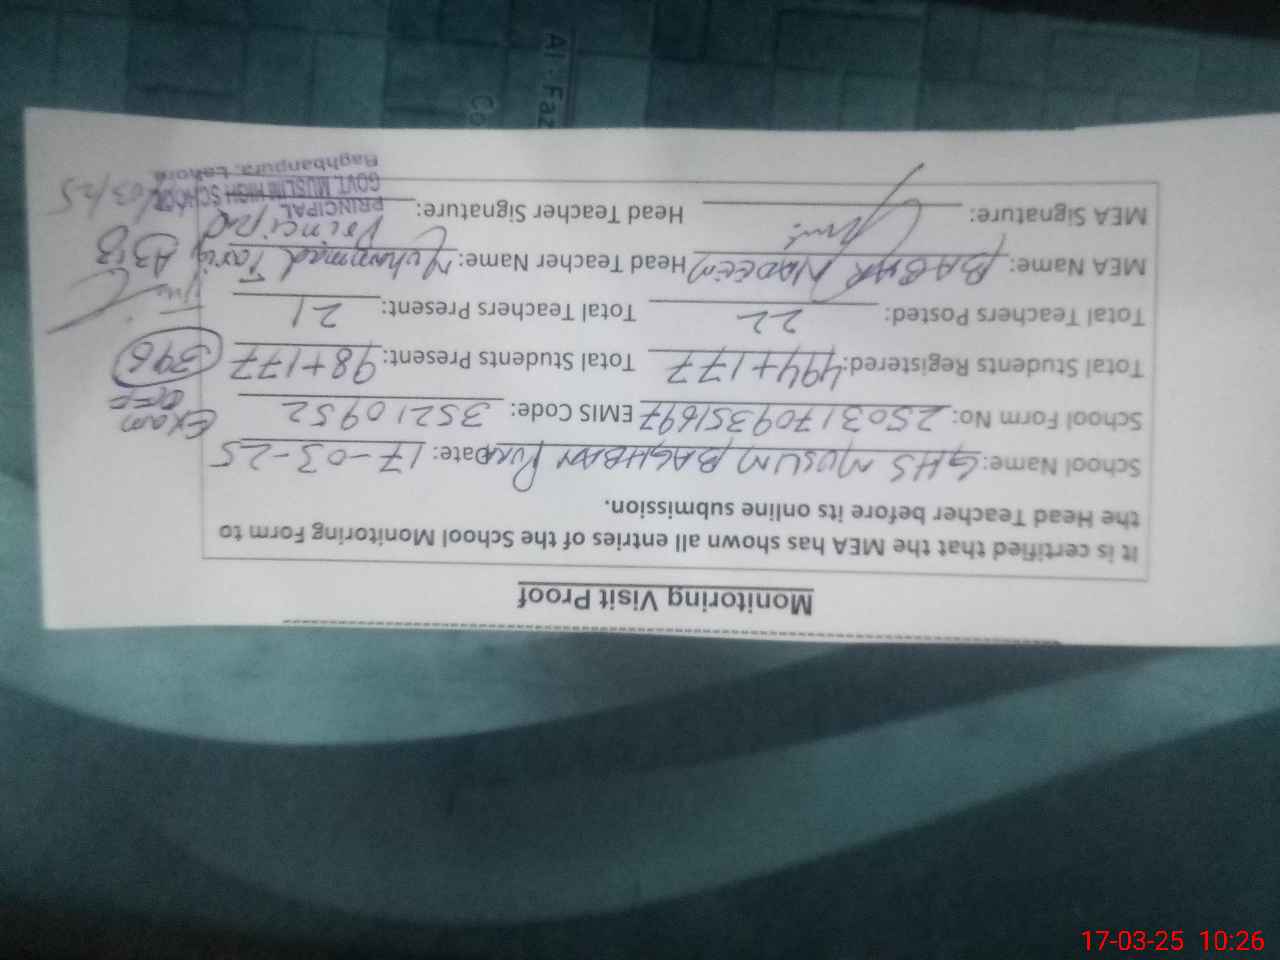 Monitoring Visit Proof
It is certified that the MEA has shown all entries of the School Monitoring Form to
the Head Teacher before its online submission.
School Name: GHS MUSLIM BAGHBAN PURA Date: 17-03-25
School Form No: 250317093516 97 EMIS Code: 35210952 Exam OFF
Total Students Registered: 494+177 Total Students Present: 98+177 396
Total Teachers Posted: 22 Total Teachers Present: 21
MEA Name: BABAR NADEEM Head Teacher Name: Muhammad Tariq
MEA Signature: Head Teacher Signature: Principal
PRINCIPAL
GOVT. MUSLIM HIGH SCHOOL
Baghbanpura, Lahore
03/25
Al-Faz
Co
17-03-25 10:26